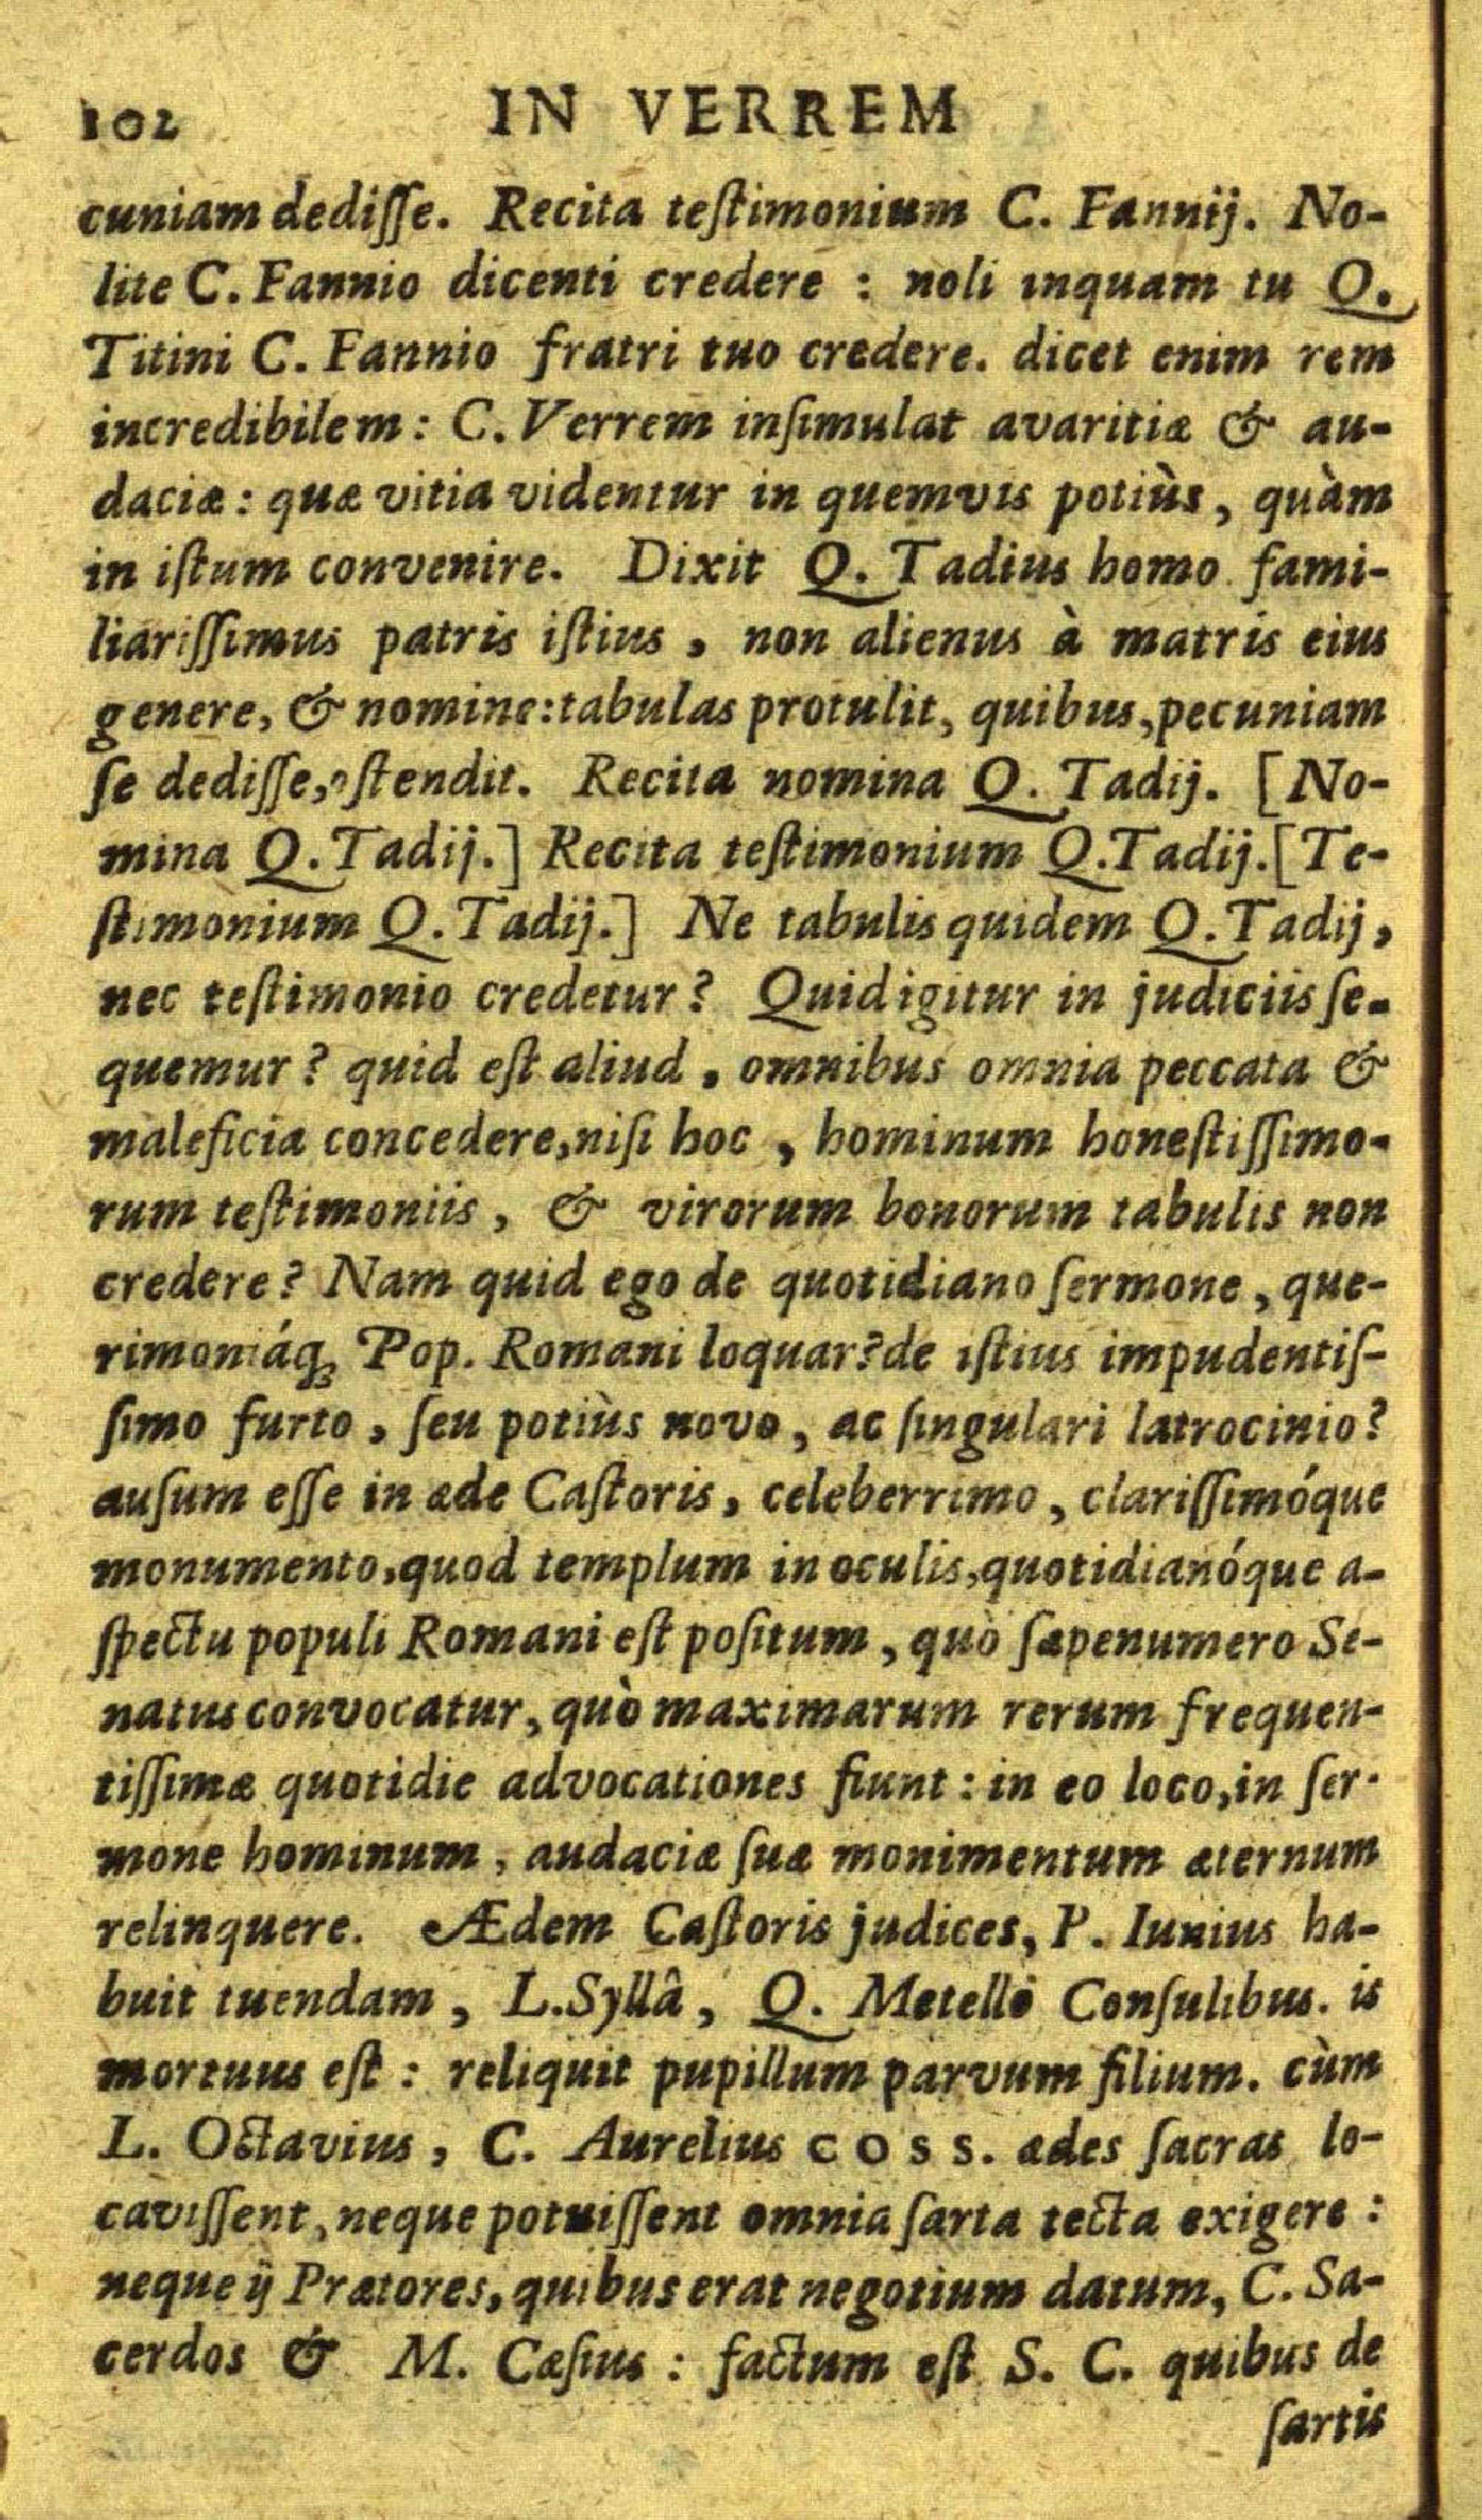 102 IN VERREM
cuniam dedisſe. Recita teſtimonium C. Fannij. No-
lite C. Fannio dicenti credere : noli inquam tu Q.
Titini C. Fannio fratri tuo credere. dicet enim rem
incredibilem : C. Verrem inſimulat avaritiæ & au-
daciæ : quæ vitia videntur in quemvis potiùs, quàm
in iſtum convenire. Dixit Q. Tadius homo fami-
liariſſimus patris iſtius, non alienus à matris eius
genere, & nomine: tabulas protulit, quibus, pecuniam
ſe dediſſe, oſtendit. Recita nomina Q. Tadij. [No-
mina Q. Tadij.] Recita teſtimonium Q. Tadij. [Te-
ſtimonium Q. Tadij.] Ne tabulis quidem Q. Tadij,
nec teſtimonio credetur? Quid igitur in judiciis ſe-
quemur? quid eſt aliud, omnibus omnia peccata &
maleficia concedere, niſi hoc, hominum honeſtiſſimo-
rum teſtimoniis, & virorum bonorum tabulis non
credere? Nam quid ego de quotidiano ſermone, que-
rimoniáq; Pop. Romani loquar? de iſtius impudentiſ-
ſimo furto, ſeu potiùs novo, ac ſingulari latrocinio?
auſum eſſe in æde Caſtoris, celeberrimo, clariſſimóque
monumento, quod templum in oculis, quotidianóque a-
ſpectu populi Romani eſt poſitum, quò ſæpenumero Se-
natus convocatur, quò maximarum rerum frequen-
tiſſimæ quotidie advocationes fiunt : in eo loco, in ſer-
mone hominum, audaciæ ſuæ monimentum æternum
relinquere. Ædem Caſtoris judices, P. Iunius ha-
buit tuendam, L. Syllâ, Q. Metello Conſulibus. is
mortuus eſt : reliquit pupillum parvum filium. cùm
L. Octavius, C. Aurelius COSS. ædes ſacras lo-
caviſſent, neque potuiſſent omnia ſarta tecta exigere :
neque ij Prætores, quibus erat negotium datum, C. Sa-
cerdos & M. Cæſius : factum eſt S. C. quibus de
ſartis